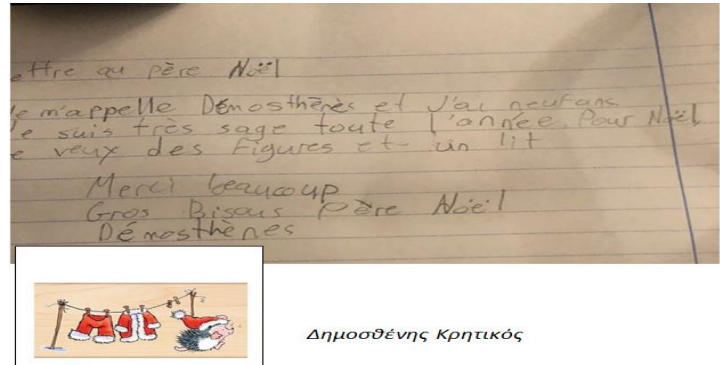 ettre au père Noël
Je m'appelle Démosthènès et J'ai neuf ans
Je suis très sage toute l'année. Pour Noël
e veux des Figures et un lit
Merci beaucoup
Gros Bisous Père Noël
Démosthènes
Δημοσθένης Κρητικός